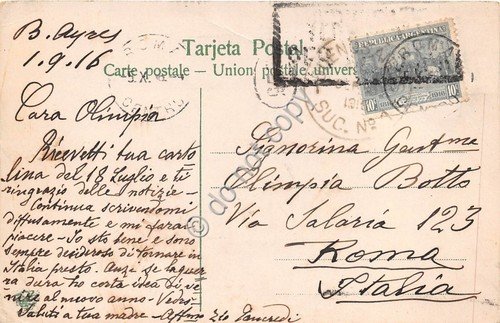 B. Ayres
1.9.16
Tarjeta Postal
Carte postale — Union postale universelle
REPUBLICA ARGENTINA
10 10
SUC. Nº
ROMA
Cara Olimpia
Ricevetti tua carto
lina del 18 Luglio e ti
ringrazio delle notizie -
Continua scrivendomi
diffusamente e mi farai
piacere - Io sto bene e sono
sempre desideroso di tornare in
Italia presto. Anzi se la guerra
dura ho certa idea di ve
nire al nuovo anno -
Saluti a tua madre - Affmo Zio
Signorina Gentma
Olimpia Botto
Via Salaria 123
Roma
Italia